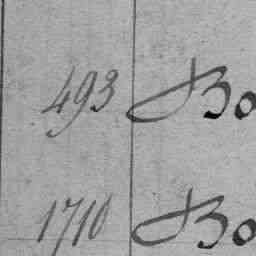 493 Bo
1710 Bo